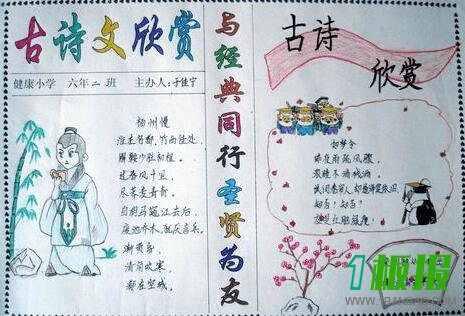 古诗文欣赏
健康小学 六年二班 主办人:于佳宁
杨州慢
淮左名都,竹西佳处,
解鞍少驻初程。
过春风十里,
尽荠麦青青。
自胡马窥江去后,
废池乔木,犹厌言兵。
渐黄昏
清角吹寒
都在空城。
与经典同行圣贤为友
古诗
欣赏
如梦令
昨夜雨疏风骤,
浓睡不消残酒
试问卷帘人,却道海棠依旧。
知否?知否?
应是绿肥红瘦。
1板报
WWW.1BANBAO.COM